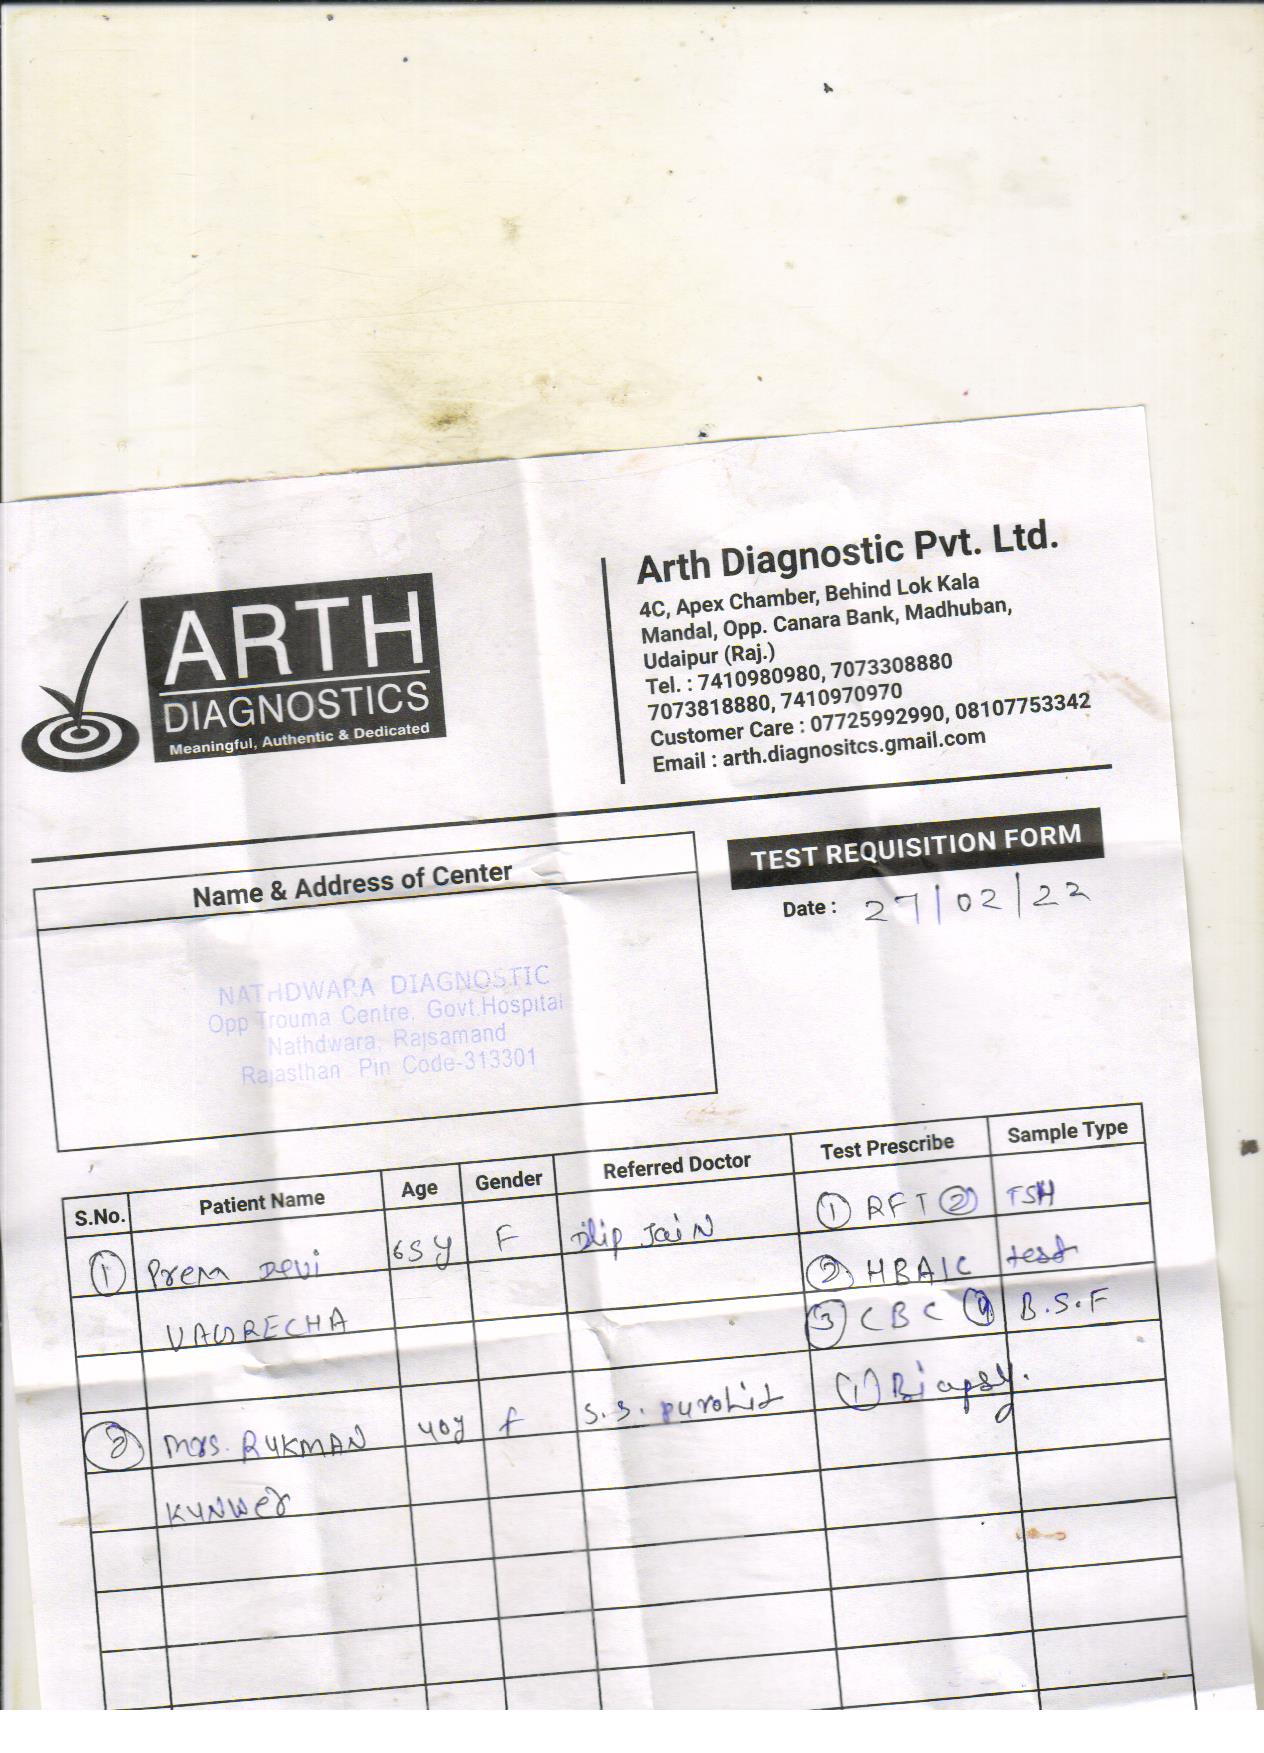 ARTH
DIAGNOSTICS
Meaningful, Authentic & Dedicated
Arth Diagnostic Pvt. Ltd.
4C, Apex Chamber, Behind Lok Kala
Mandal, Opp. Canara Bank, Madhuban,
Udaipur (Raj.)
Tel. : 7410980980, 7073308880
7073818880, 7410970970
Customer Care : 07725992990, 08107753342
Email : arth.diagnositcs.gmail.com
TEST REQUISITION FORM
Date : 27/02/22
Name & Address of Center
NATHDWARA DIAGNOSTIC
Opp Trouma Centre, Govt.Hospital
Nathdwara, Rajsamand
Rajasthan Pin Code-313301
S.No. Patient Name Age Gender Referred Doctor Test Prescribe Sample Type
① Prem Devi 65y F Dilip Jain ① RFT ② TSH
② HBA1C test
VAGRECHA ③ CBC ④ B.S.F
② Mrs. RUKMAN 40y f S.S. purohit ① Biapsy.
KUNWer